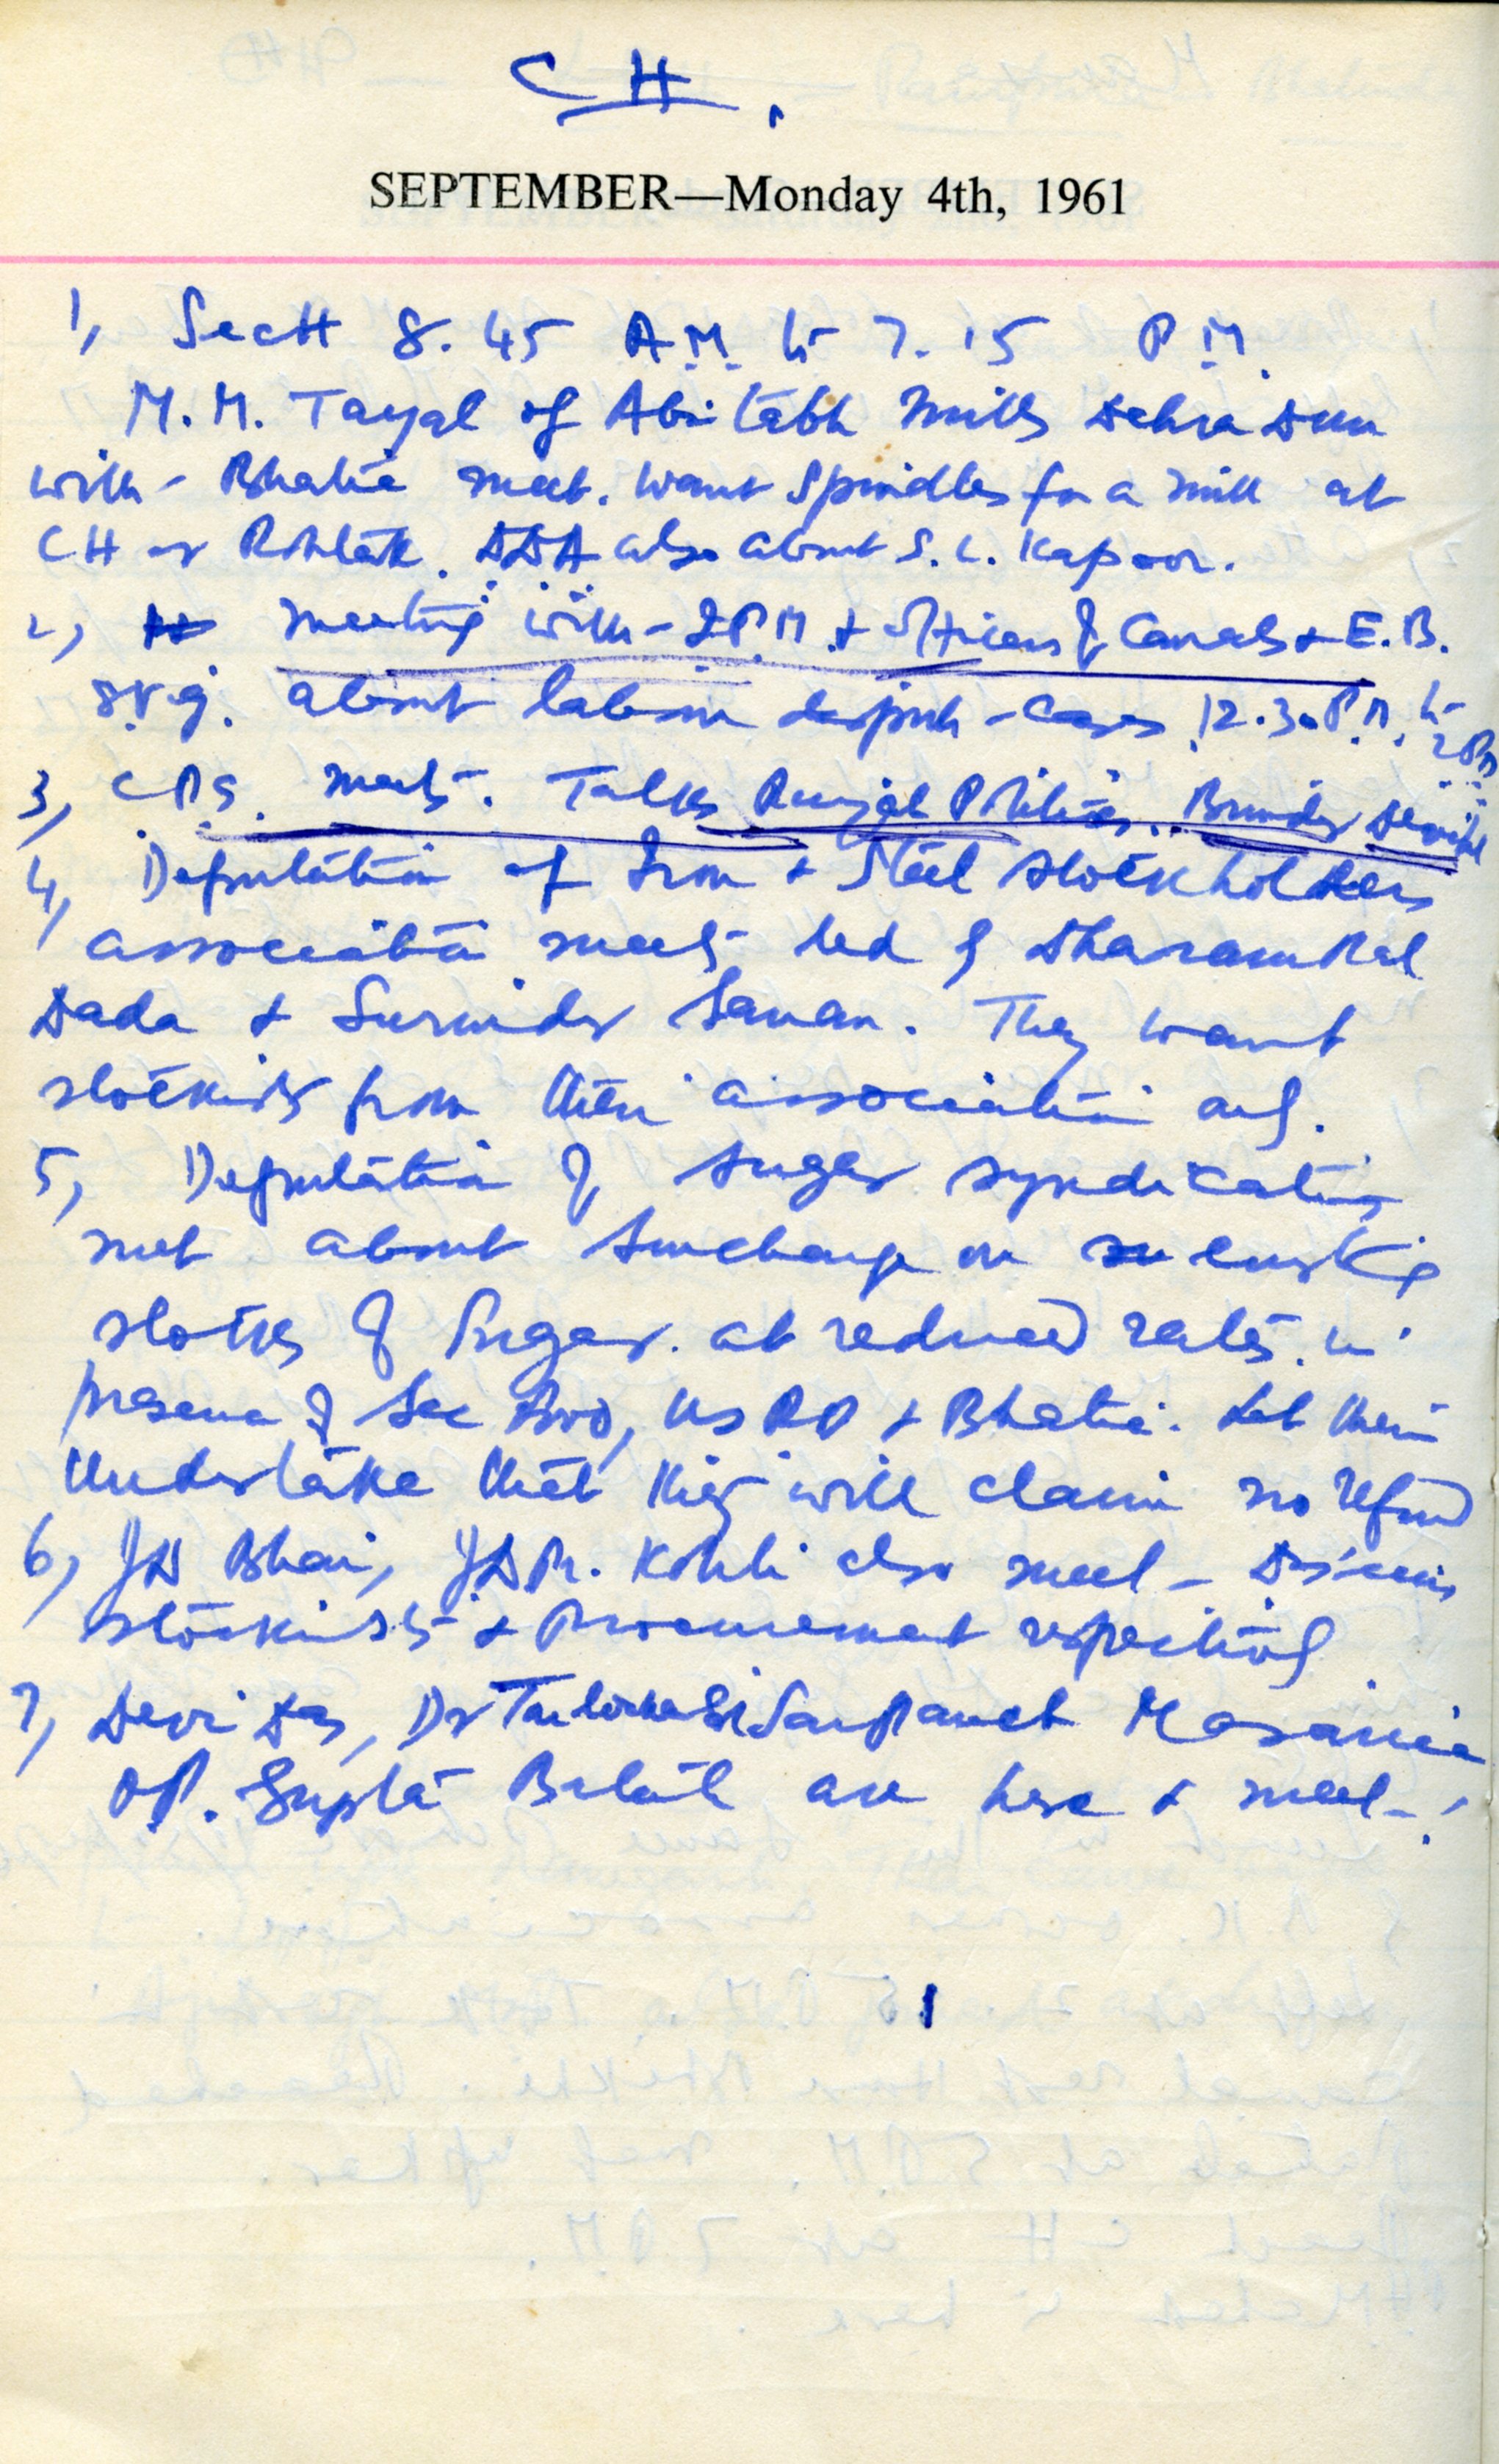 CH.
SEPTEMBER—Monday 4th, 1961
1, Sectt 8.45 A.M. to 7.15 P.M.
M.M. Tayal of Abitabh Mills Dehra Dun
with Bhatia meet. want spindles for a mill at
CH or Rohtak. also about S.L. Kapoor.
2, meeting with I.P.M. + officers of Canals + E.B.
about labour dispute cases 12.30 P.M. to
2 PM
3, C.P.S. meets. Talks Punjab Politics.
4, Deputation of Iron + Steel stockholders
association meets led by Dharampal
Dada + Surinder Sanan. They want
stockists from their association only.
5, Deputation of sugar
met about Surcharge on existing
stocks of Sugar. at reduced rates. in
presence of Sec + Bhatia. Let them
Undertake that they will claim no refund
6, Bhai, Kohli also meet - Discuss
stockists + Procurement respectively
7, Devi Das, Dr Sarpanch
O.P. Gupta are here + meet -